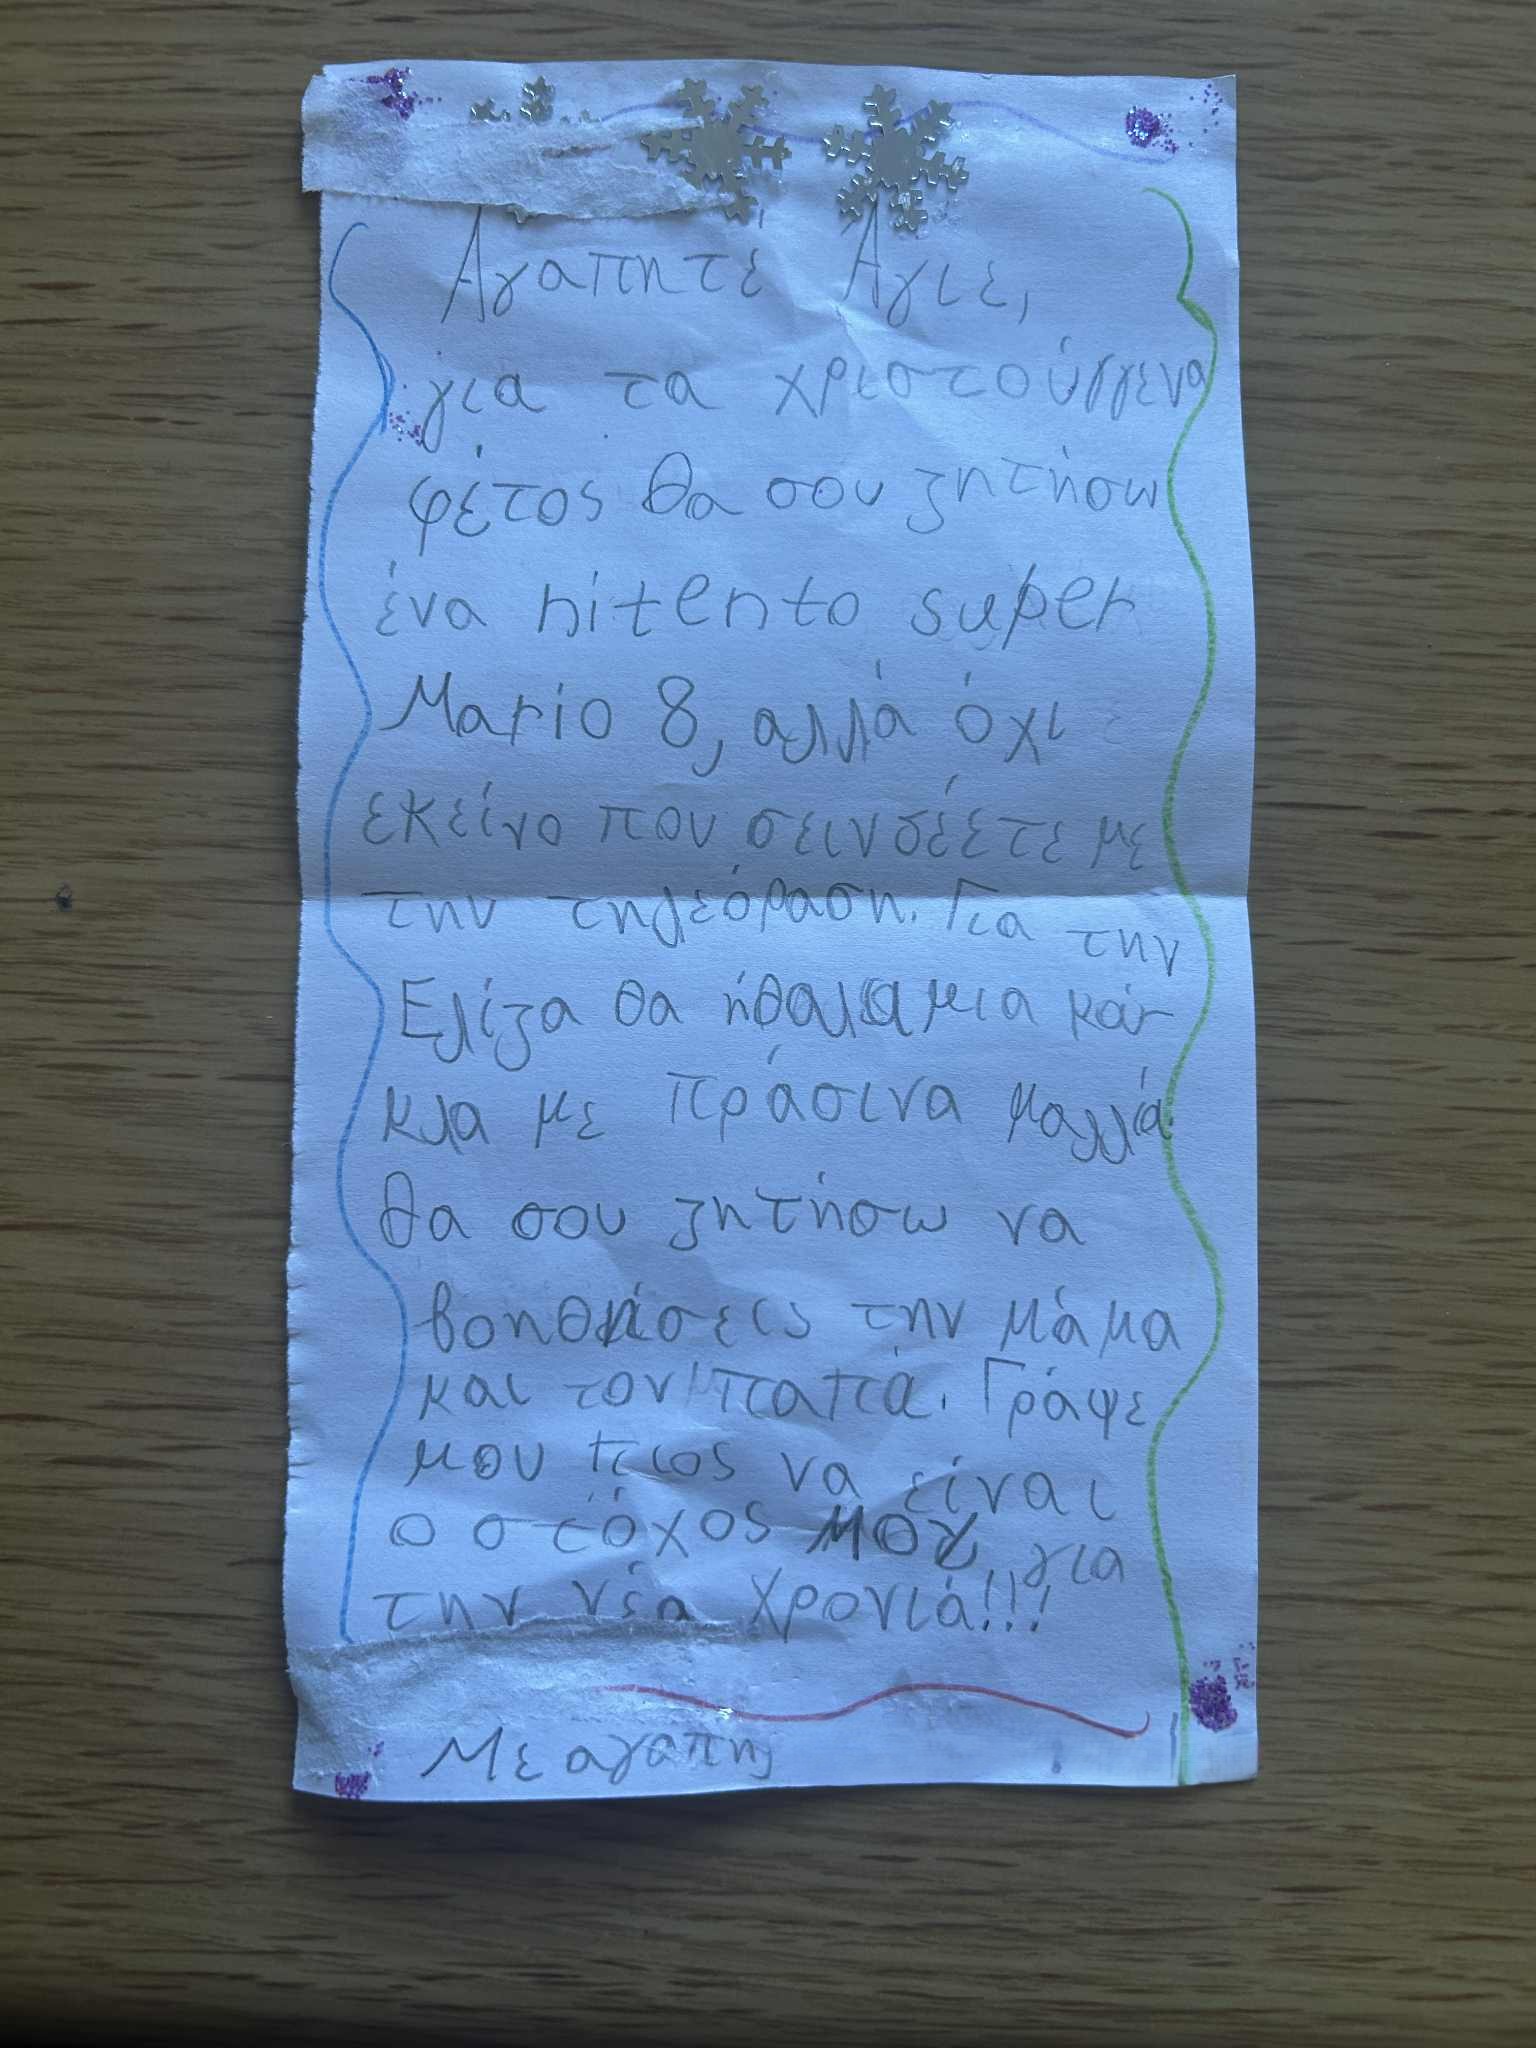 Αγαπητέ Άγιε,
για τα χριστούγγενα
φέτος θα σου ζητήσω
ένα nitento super
Mario 8, αλλά όχι
εκείνο που σεινδέετε με
την τηλεόραση. Για την
Ελίζα θα ήθαλα μια κάν
κλα με πράσινα μαλλιά.
θα σου ζητήσω να
βοηθήσεις την μάμα
και τον παπά. Γράψε
μου πιος να είναι
ο στόχος μου για
την νέα χρονιά!!!
Με αγαπη